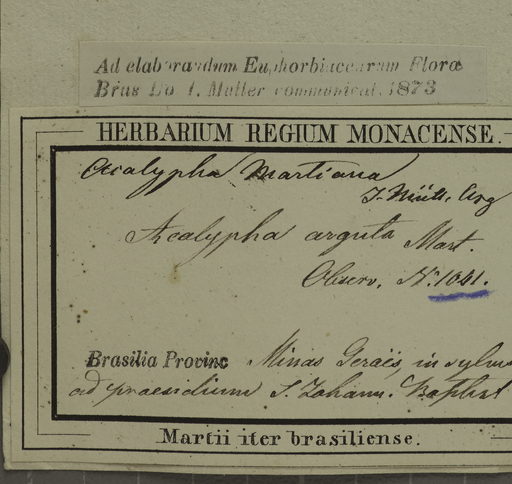 Ad elaborandum Euphorbiacearum Floræ
Bras Do. J. Müller communicat. 1873
HERBARIUM REGIUM MONACENSE.
Acalypha Martiana
J. Müll. Arg
Acalypha arguta Mart.
Observ. N. 1041.
Brasilia Provinc Minas Geraës, in sylvis
ad praesidium S. Johann. Baptist
Martii iter brasiliense.